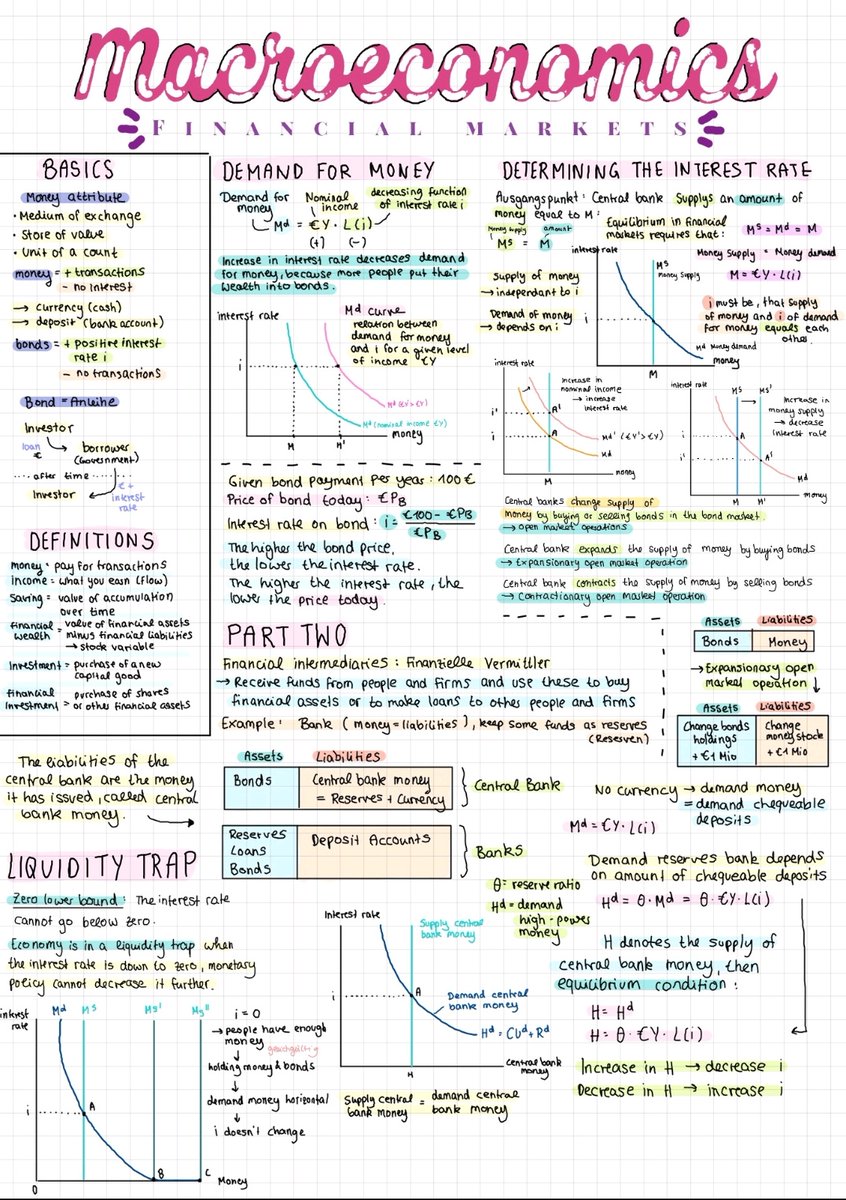 Macroeconomics
FINANCIAL MARKETS
BASICS
Money attribute
• Medium of exchange
• Store of value
• Unit of a count
money = + transactions
- no interest
→ currency (cash)
→ deposit (bank account)
bonds = + positive interest
rate i
- no transactions
Bond = Anleihe
Investor
loan
€
borrower
(Government)
after time
€ +
interest
rate
Investor
DEFINITIONS
money = pay for transactions
income = what you earn (flow)
Saving = value of accumulation
over time
financial wealth = value of financial assets
minus financial liabilities
→ stock variable
Investment = purchase of a new
capital good
financial investment = purchase of shares
or other financial assets
DEMAND FOR MONEY
Demand for
money
Nominal
income
decreasing function
of interest rate i
Md = €Y · L(i)
(+) (-)
Increase in interest rate decreases demand
for money, because more people put their
wealth into bonds.
interest rate
Md curve
relation between
demand for money
and i for a given level
of income €Y
i
Md (€Y' > €Y)
Md (nominal income €Y)
M M' money
Given bond payment per year: 100 €
Price of bond today: €PB
Interest rate on bond: i = €100 - €PB / €PB
The higher the bond price,
the lower the interest rate.
The higher the interest rate, the
lower the price today.
DETERMINING THE INTEREST RATE
Ausgangspunkt: Central bank supplys an amount of
money equal to M:
Money supply amount
Ms = M
Equilibrium in financial
markets requires that:
Ms = Md = M
Money Supply = Money demand
M = €Y · L(i)
Supply of money
→ independant to i
Demand of money
→ depends on i
interest rate
Ms
Money Supply
i
Md Money demand
M money
i must be, that supply
of money and i of demand
for money equals each
other.
interest rate
increase in
nominal income
→ increase
interest rate
i'
A'
i
A
Md' (€Y' > €Y)
Md
M money
interest rate
Ms Ms'
increase in
money supply
→ decrease
interest rate
i
A
i'
A'
Md
M M' money
Central banks change supply of
money by buying or selling bonds in the bond market.
→ open market operations
Central bank expands the supply of money by buying bonds
→ Expansionary open market operation
Central bank contracts the supply of money by selling bonds
→ Contractionary open market operation
PART TWO
Financial intermediaries: Finanzielle Vermittler
→ Receive funds from people and firms and use these to buy
financial assets or to make loans to other people and firms
Example: Bank (money = liabilities), keep some funds as reserves
(Reserven)
Assets Liabilities
Bonds Money
→ Expansionary open
market operation
Assets Liabilities
Change bonds
holdings
+ €1 Mio
Change
money stock
+ €1 Mio
The liabilities of the
central bank are the money
it has issued, called central
bank money.
Assets Liabilities
Bonds
Central bank money
= Reserves + Currency
Central Bank
Reserves
Loans
Bonds
Deposit Accounts
Banks
No currency → demand money
= demand chequeable
deposits
Md = €Y · L(i)
Demand reserves bank depends
on amount of chequeable deposits
Hd = θ · Md = θ · €Y · L(i)
θ = reserve ratio
Hd = demand
high-power
money
H denotes the supply of
central bank money, then
equilibrium condition:
H = Hd
H = θ · €Y · L(i)
Increase in H → decrease i
Decrease in H → increase i
Interest rate
Supply central
bank money
i
A
Demand central
bank money
Hd = CUd + Rd
H
central bank
money
Supply central bank money = demand central bank money
LIQUIDITY TRAP
Zero lower bound: The interest rate
cannot go below zero.
Economy is in a liquidity trap when
the interest rate is down to zero, monetary
policy cannot decrease it further.
interest
rate
Md Ms Ms' Ms''
i
A
B
C
0
Money
i = 0
→ people have enough
money
gleichgültig
holding money & bonds
demand money horizontal
i doesn't change